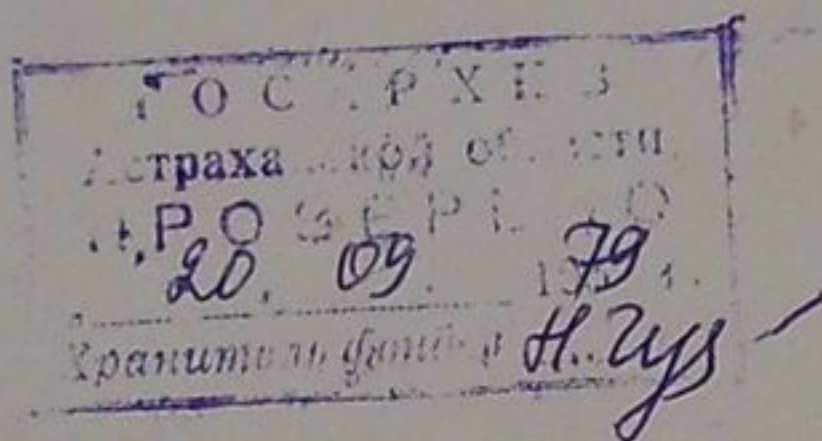 ГОСАРХИВ
Астраханской области
ПРОВЕРЕНО
20. 09. 1979 г.
Хранитель фондов Н. Гуз